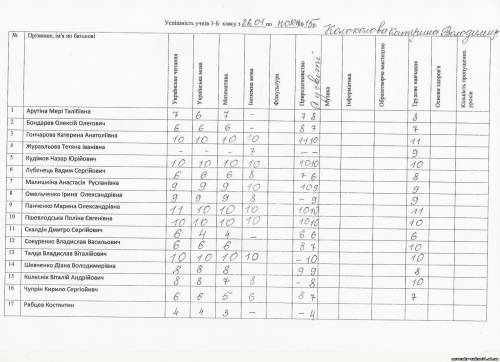 Успішність учнів 3-Б класу з 26.01 по 15р.
Колоколова Катерина Володимир
№ Прізвище, ім'я по батькові Українське читання Українська мова Математика Іноземна мова Фізкультура Природознавство Я у світі Музика Інформатика Образотворче мистецтво Трудове навчання Основи здоров'я Кількість пропущених уроків
1 Арутіна Мері Талібівна 7 6 7 - 7 8 8
2 Бондарев Олексій Олегович 6 6 6 - 8 7 7
3 Гончарова Катерина Анатоліївна 10 10 10 10 11 10 11
4 Журавльова Тетяна Іванівна - - - 7 - - 9
5 Кудімов Назар Юрійович 10 10 10 10 10 10 10
6 Лубенець Вадим Сергійович 6 6 6 8 7 6 8
7 Малишкіна Анастасія Русланівна 9 9 9 10 10 9 9
8 Омельченко Ірина Олександрівна 9 9 9 8 - 9 9
9 Панченко Марина Олександрівна 11 10 10 10 10 10 11
10 Пшевлодська Поліна Євгенівна 10 10 10 10 10 10 10
11 Скалдін Дмитро Сергійович 6 4 4 - 6 6 6
12 Сокуренко Владислав Васильович 6 6 6 8 7 10
13 Талда Владислав Віталійович 10 10 10 10 - 10 10
14 Шевченко Діана Володимирівна 8 8 8 9 9 8
15 Колєснік Віталій Андрійович 8 8 7 8 - 8 10
16 Чупрін Кирило Сергійович 6 6 5 6 8 7 7
17 Рябцев Костянтин 4 4 3 - - 4